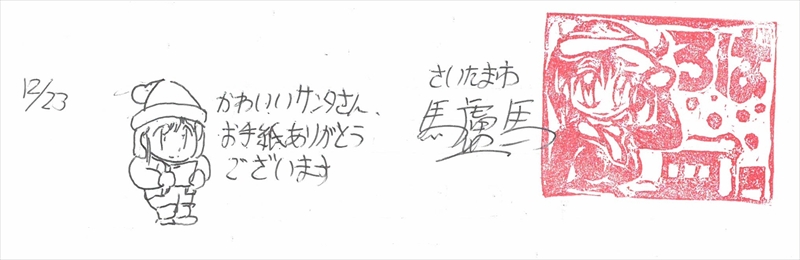 12/23
かわいいサンタさん、
お手紙ありがとう
ございます
さいたまわ
馬盧馬
ろば